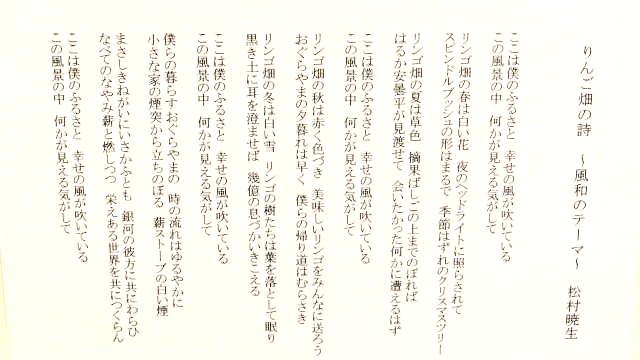 りんご畑の詩　～風和のテーマ～　松村暁生
ここは僕のふるさと　幸せの風が吹いている
この風景の中　何かが見える気がして
リンゴ畑の春は白い花　夜のヘッドライトに照らされて
スピンドルブッシュの形はまるで　季節はずれのクリスマスツリー
リンゴ畑の夏は草色　摘果ばしごの上までのぼれば
はるか安曇平が見渡せて　会いたかった何かに遭えるはず
ここは僕のふるさと　幸せの風が吹いている
この風景の中　何かが見える気がして
リンゴ畑の秋は赤く色づき　美味しいリンゴをみんなに送ろう
おぐらやまの夕暮れは早く　僕らの帰り道はむらさき
リンゴ畑の冬は白い雪　リンゴの樹たちは葉を落として眠り
黒き土に耳を澄ませば　幾億の息づかいきこえる
ここは僕のふるさと　幸せの風が吹いている
この風景の中　何かが見える気がして
僕らの暮らすおぐらやまの　時の流れはゆるやかに
小さな家の煙突から立ちのぼる　薪ストーブの白い煙
まさしきねがいにいさかふとも　銀河の彼方に共にわらひ
なべてのなやみ薪と燃しつつ　栄えある世界を共につくらん
ここは僕のふるさと　幸せの風が吹いている
この風景の中　何かが見える気がして